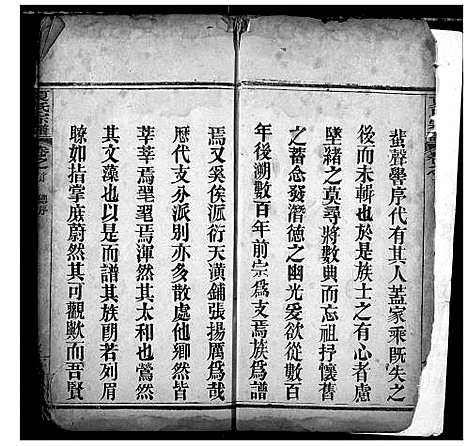 蜚聲學序代有其人蓋家乘既失之
後而未輯也於是族士之有心者慮
墜緒之莫尋將數典而忘祖抒懷舊
之蓄念發潛德之幽光爰欲從數百
年後溯數百年前宗爲支焉族爲譜
焉又奚俟派衍天潢鋪張揚厲爲哉
歷代支分派別亦多散處他鄉然皆
莘莘焉墨墨焉渾然其太和也鶯然
其文藻也以是而譜其族朗若列眉
瞭如指掌庶蔚然其可觀歟而吾賢
夏氏宗譜